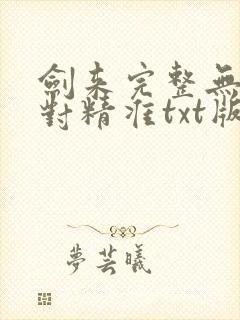 劍来完整無
對精准txt版
夢芸曦